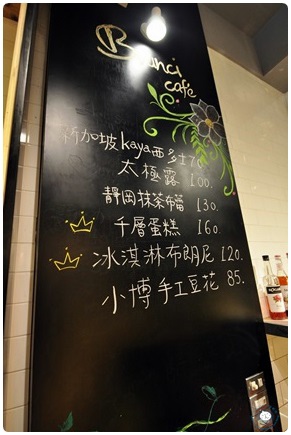 Bonci
café
新加坡kaya西多士70.
太極露 100.
靜岡抹茶布蕾 130.
千層蛋糕 160.
冰淇淋布朗尼 120.
小博手工豆花 85.